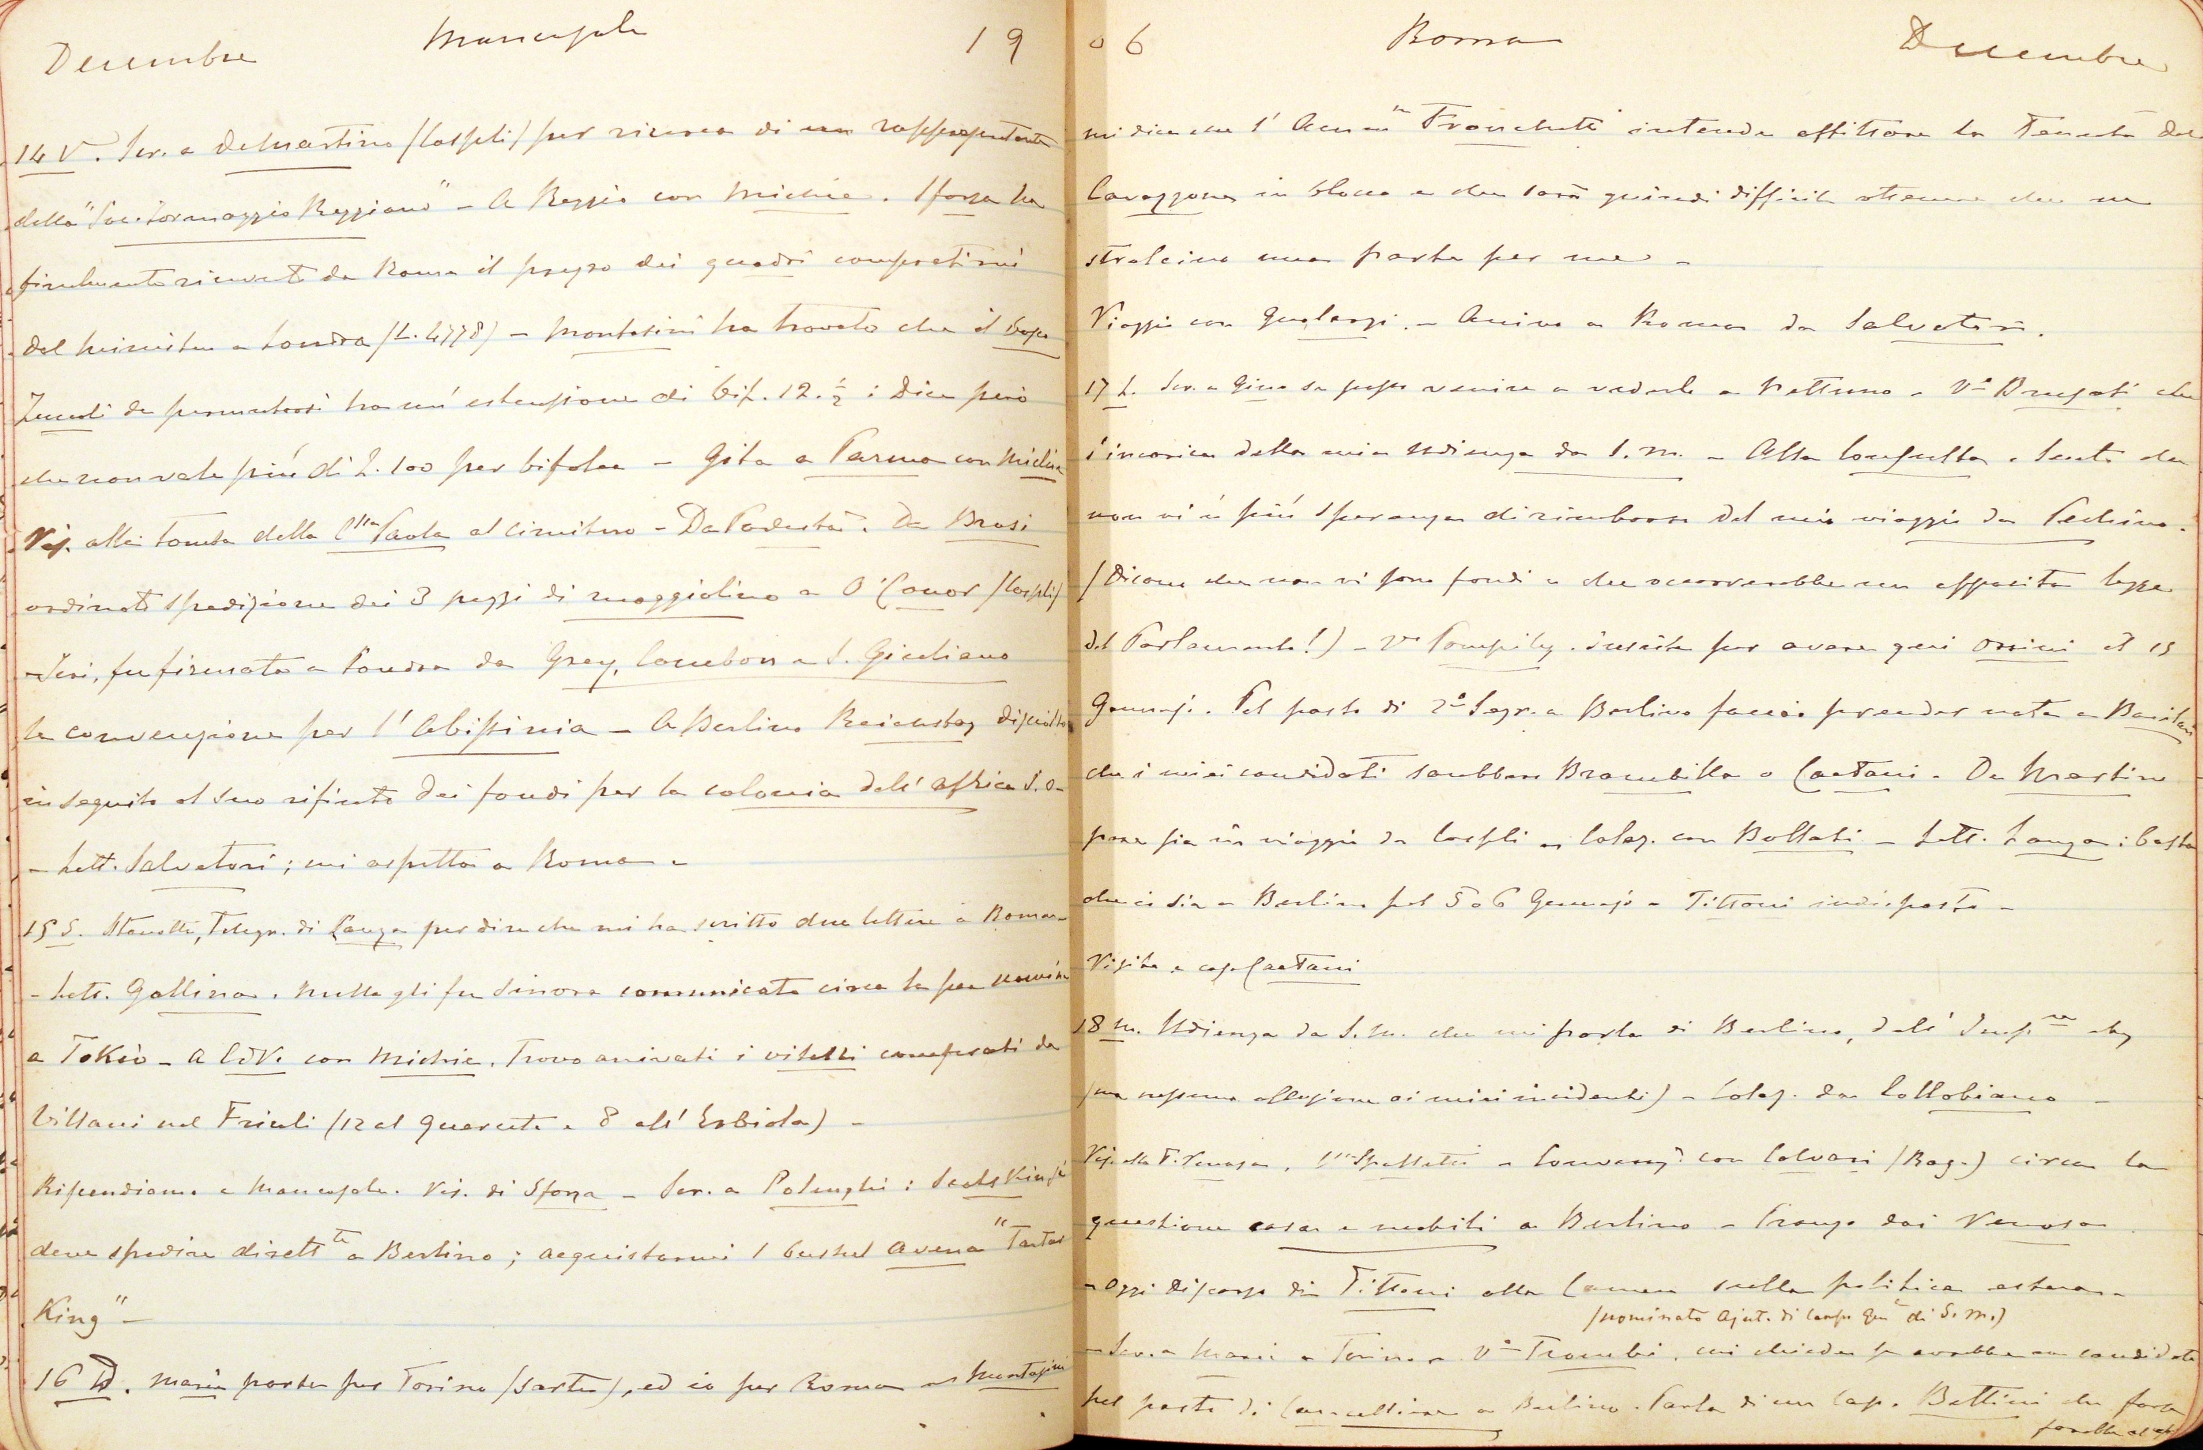 Decembre Mancasale 19
14 V. Scr. a De Martino (Cospli) per ricerca di un rappresentante
della "Soc. Formaggio Reggiano" - A Reggio con Michie. Sforza ha
finalmente ricevuto da Roma il prezzo dei quadri comperatimi
dal Ministero a Londra (L. 4778) - Montasini ha trovato che il
Zuccoli da permutarsi ha un' estensione di bif. 12.½ : Dice però
che non vale più di L. 100 per bifolca - Gita a Parma con Michie
Vis. alla tomba della Ctssa Paola al cimitero - Da Podestà. Da Brasi
ordinato spedizione dei 3 pezzi di maggiolino a O'Conor (Cospli)
- Ieri, fu firmata a Londra da Grey, Cambon e S. Giuliano
la convenzione per l'Abissinia - A Berlino Reichstag disciolto
in seguito al suo rifiuto dei fondi per la colonia dell' Africa S.O.
- Lett. Salvatori; mi aspetta a Roma -
15 S. Stanotte, Telegr. di Lanza per dire che mi ha scritto due lettere a Roma -
- Lett. Gallina. Nulla gli fu sinora comunicato circa la sua nomina
a Tokio - A CdV. con Michie. Trovo arrivati i vitelli comperati da
Villani nel Friuli (12 al Quercete e 8 all' Erbiola) -
Rispendiamo a Mancasale. Vis. di Sforza - Scr. a Polenghi :
deve spedire dirett te a Berlino; acquistarmi 1 bushel avena "Tartar
King" -
16 D. Maria parte per Torino (sarta), ed io per Roma - Montasini
06 Roma Decembre
mi dice che l' Franchetti intende affittare la Tenuta del
Cavazzone in blocco e che sarà quindi difficile ottenere che ne
stralcino una parte per me -
Viaggio con Gualerzi. - Arrivo a Roma da Salvatori.
17 L. Scr. a Gina se posso venire a vederla a Nettuno - Vo Brusati che
s'incarica della mia udienza da S.M. - Alla Consulta. Sento che
non vi è più speranza di rimborso del mio viaggio da Pechino.
(Dicono che non vi sono fondi e che occorrerebbe un apposita legge
del Parlamento!) - Vo Pompilj. insiste per avere qui Orsini il 15
Gennajo. Pel posto di 2º Segr. a Berlino faccio prender nota a
che i miei candidati sarebbero Brambilla o Caetani. De Martino
pare sia in viaggio da Cospli - Colaz. con Bollati - Lett. Lanza : basta
che ci sia a Berlino pel 5 o 6 Gennajo - Tittoni indisposto -
Visita a casa Caetani
18 M. Udienza da S.M. che mi parla di Berlino, dell' Imp.re
(ma nessuna allusione ai miei incidenti) - Colaz. da Collobiano -
Vis. alla P. Venosa, Ctssa Spalletti - Convers.ne con Calvari (Rag.) circa la
questione casa e mobili a Berlino - Pranzo dai Venosa
- Oggi discorso di Tittoni alla Camera sulla politica estera -
(nominato Ajut. di Campo Gen. di S.M.)
- Scr. a Maria a Torino - Vo Trombi, mi chiede se avrebbe un candidato
pel posto di Cancelliere a Berlino. Parla di un Cap. Bettini che forse
farebbe al